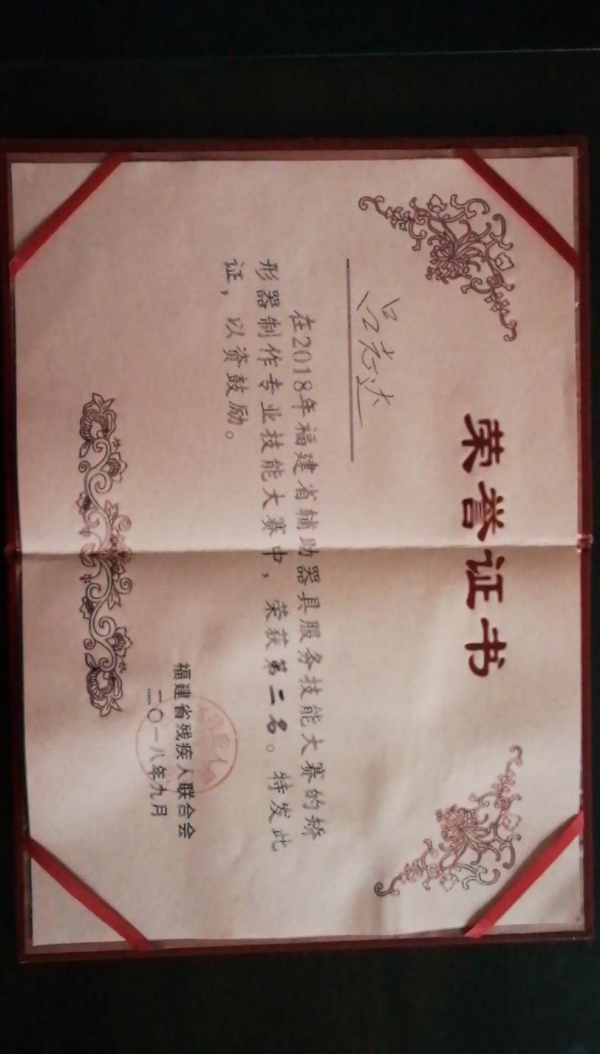 荣誉证书
吕志达
在2018年福建省辅助器具服务技能大赛的矫
形器制作专业技能大赛中，荣获第二名。特发此
证，以资鼓励。
福建省残疾人联合会
二〇一八年九月